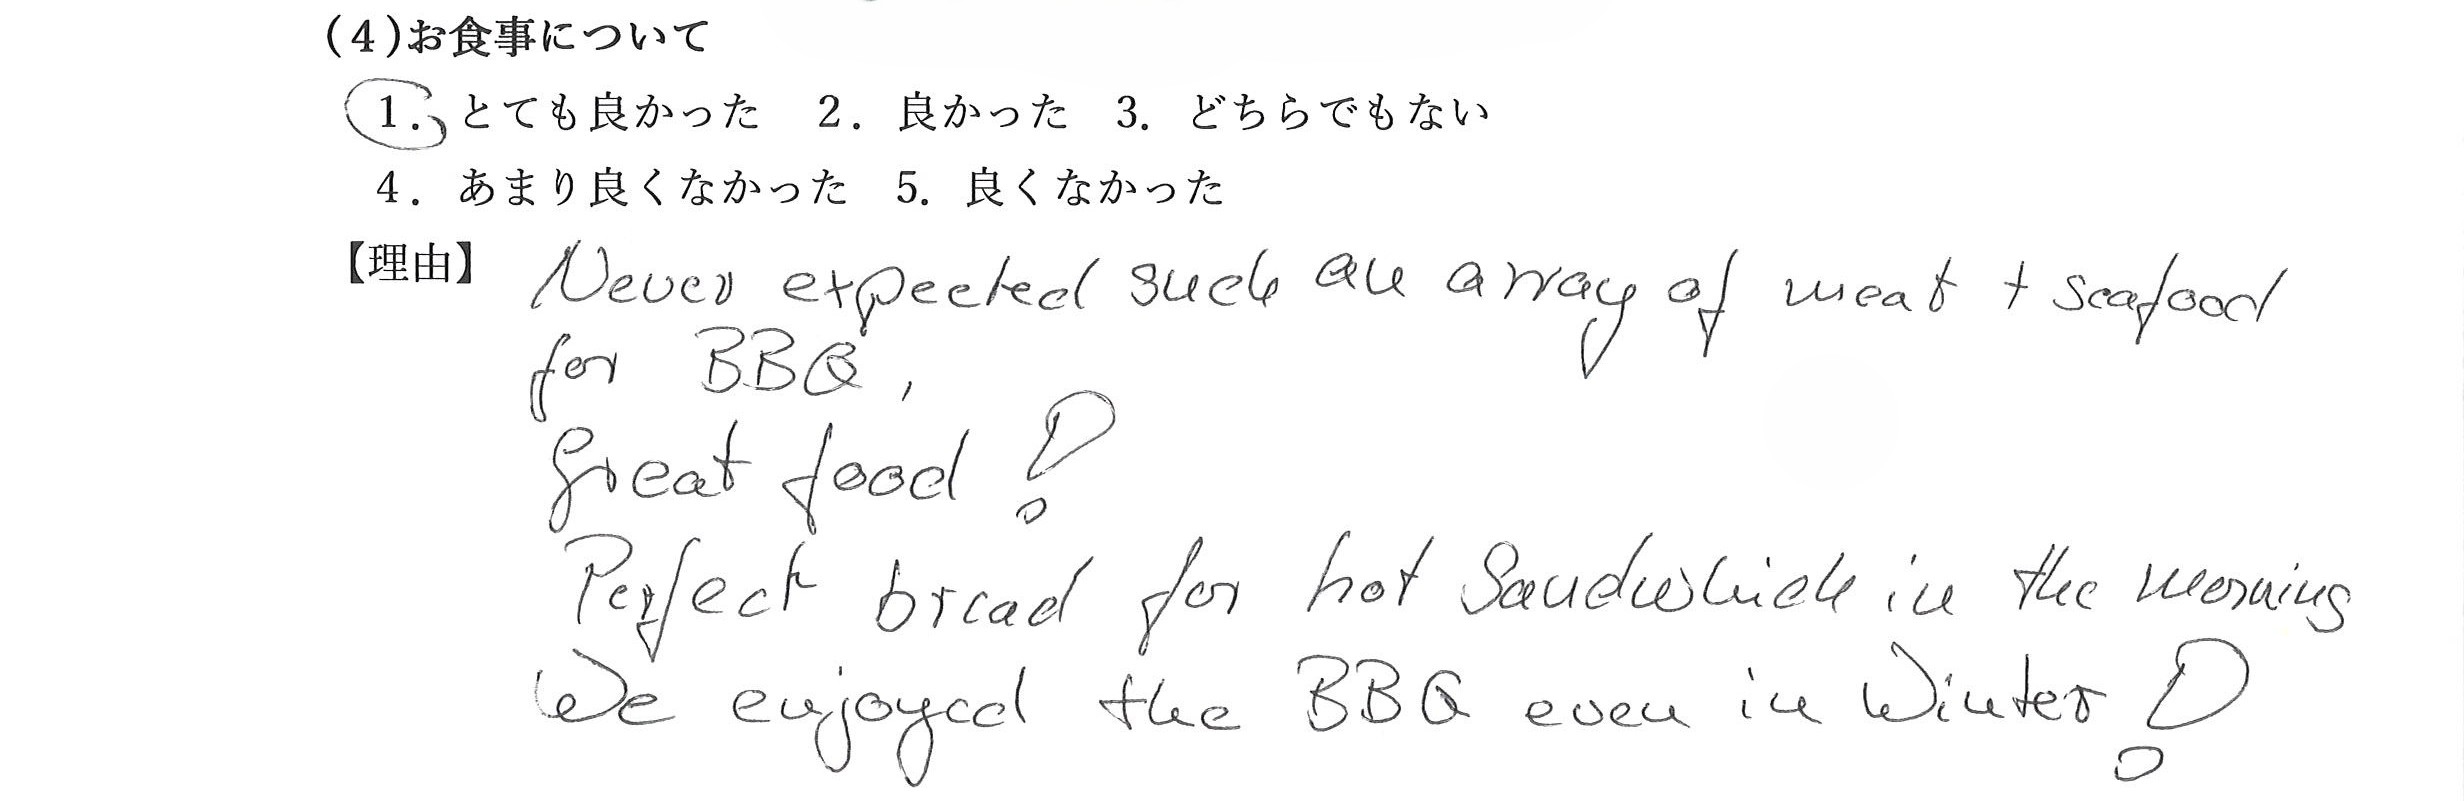 (4)お食事について
1. とても良かった 2. 良かった 3. どちらでもない
4. あまり良くなかった 5. 良くなかった
【理由】 Never expected such an array of meat + seafood
for BBQ,
Great food!
Perfect bread for hot Sandwhich in the morning
We enjoyed the BBQ even in Winter!